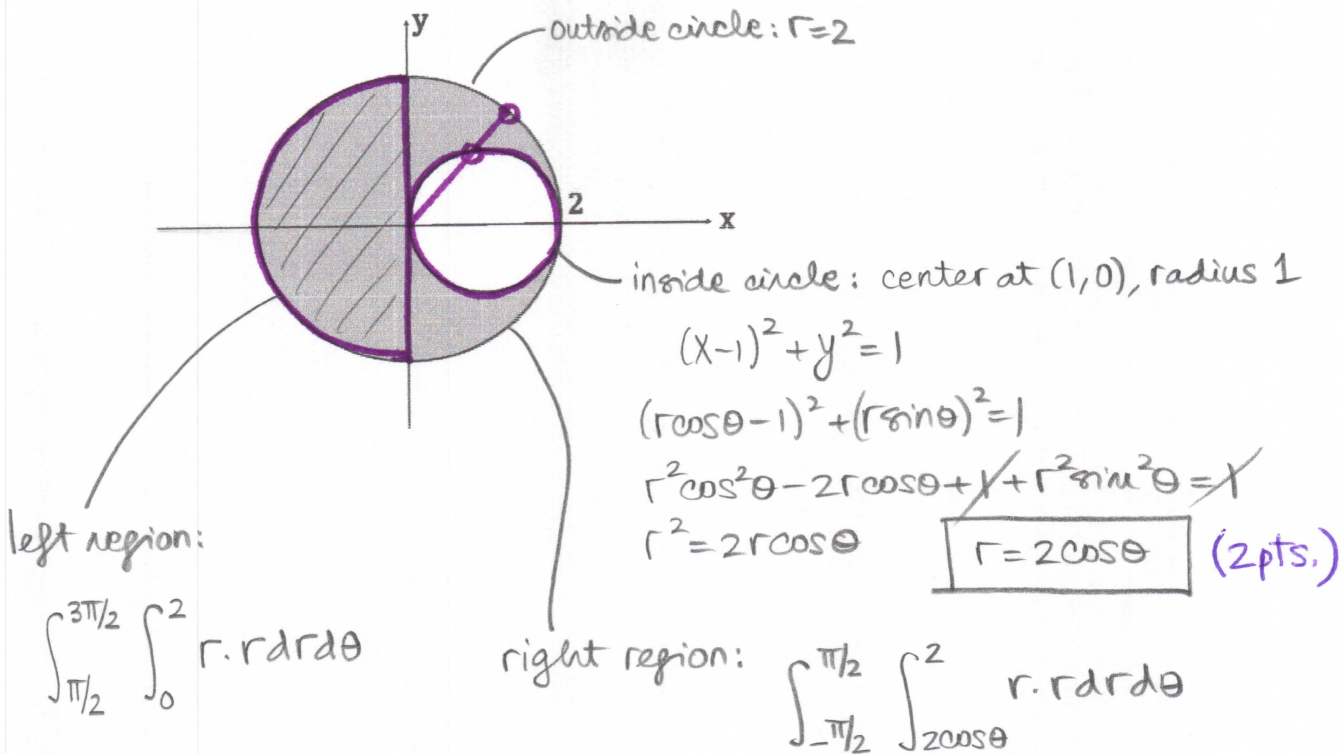 y
outside circle: r=2
2
x
inside circle: center at (1,0), radius 1
(x-1)²+y²=1
(rcosθ-1)²+(rsinθ)²=1
r²cos²θ-2rcosθ+1+r²sin²θ=1
r²=2rcosθ
r=2cosθ (2pts.)
left region:
∫_{π/2}^{3π/2} ∫_0^2 r·rdrdθ
right region: ∫_{-π/2}^{π/2} ∫_{2cosθ}^2 r·rdrdθ